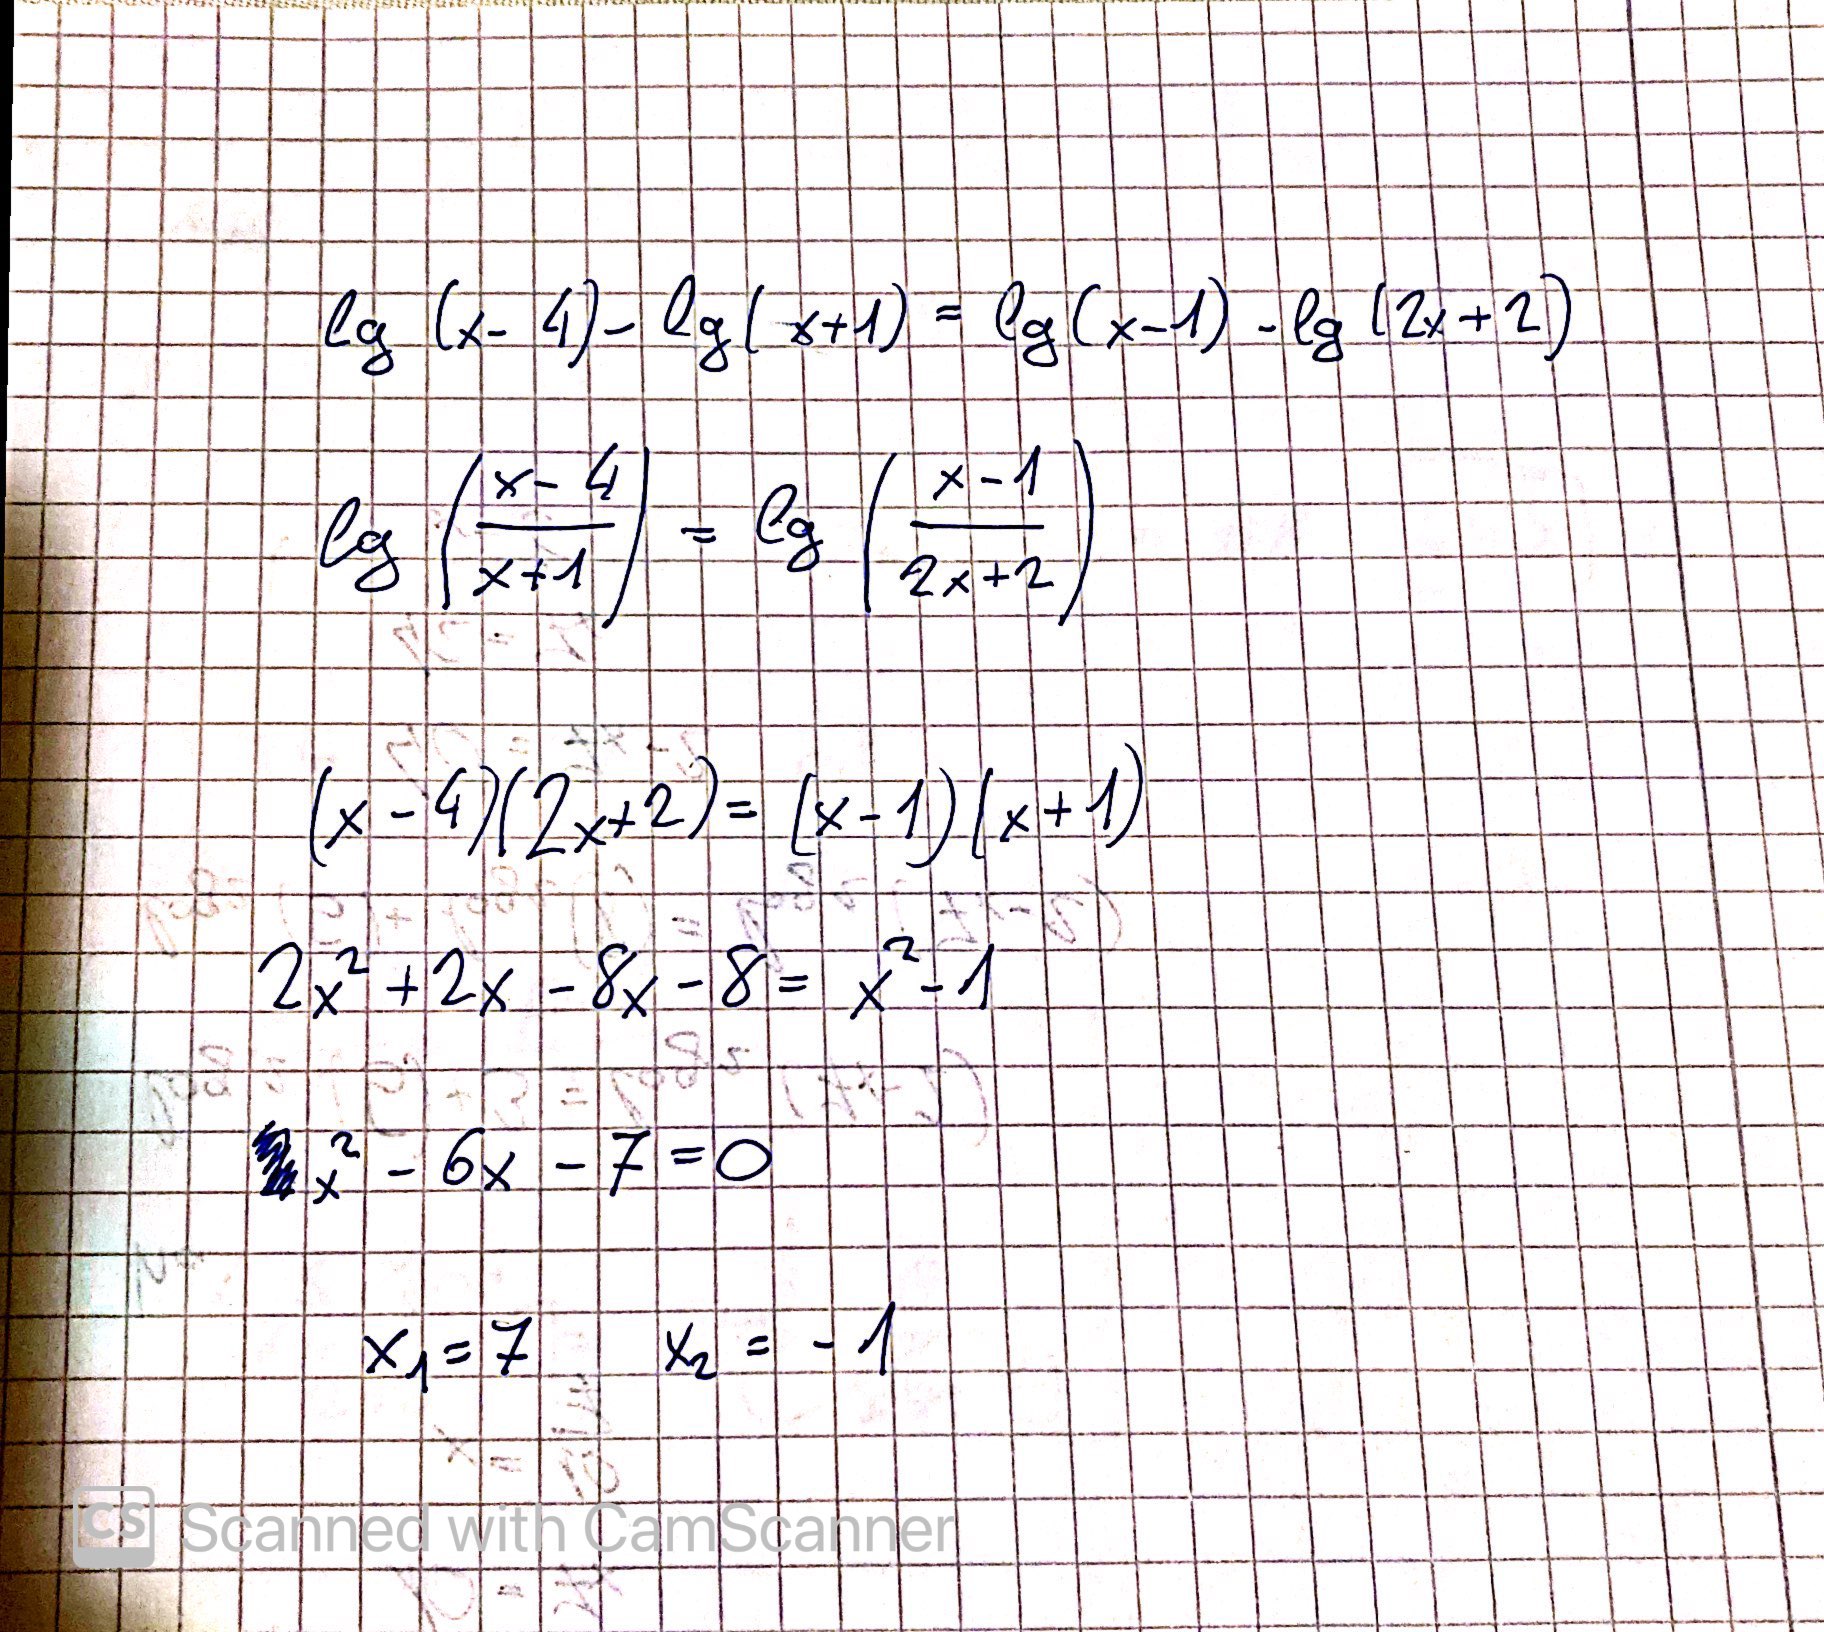 lg (x - 4) - lg (x+1) = lg (x-1) - lg (2x+2)
lg ((x-4)/(x+1)) = lg ((x-1)/(2x+2))
(x - 4)(2x+2) = (x-1)(x+1)
2x² + 2x - 8x - 8 = x² - 1
x² - 6x - 7 = 0
x₁ = 7 x₂ = -1
CS Scanned with CamScanner